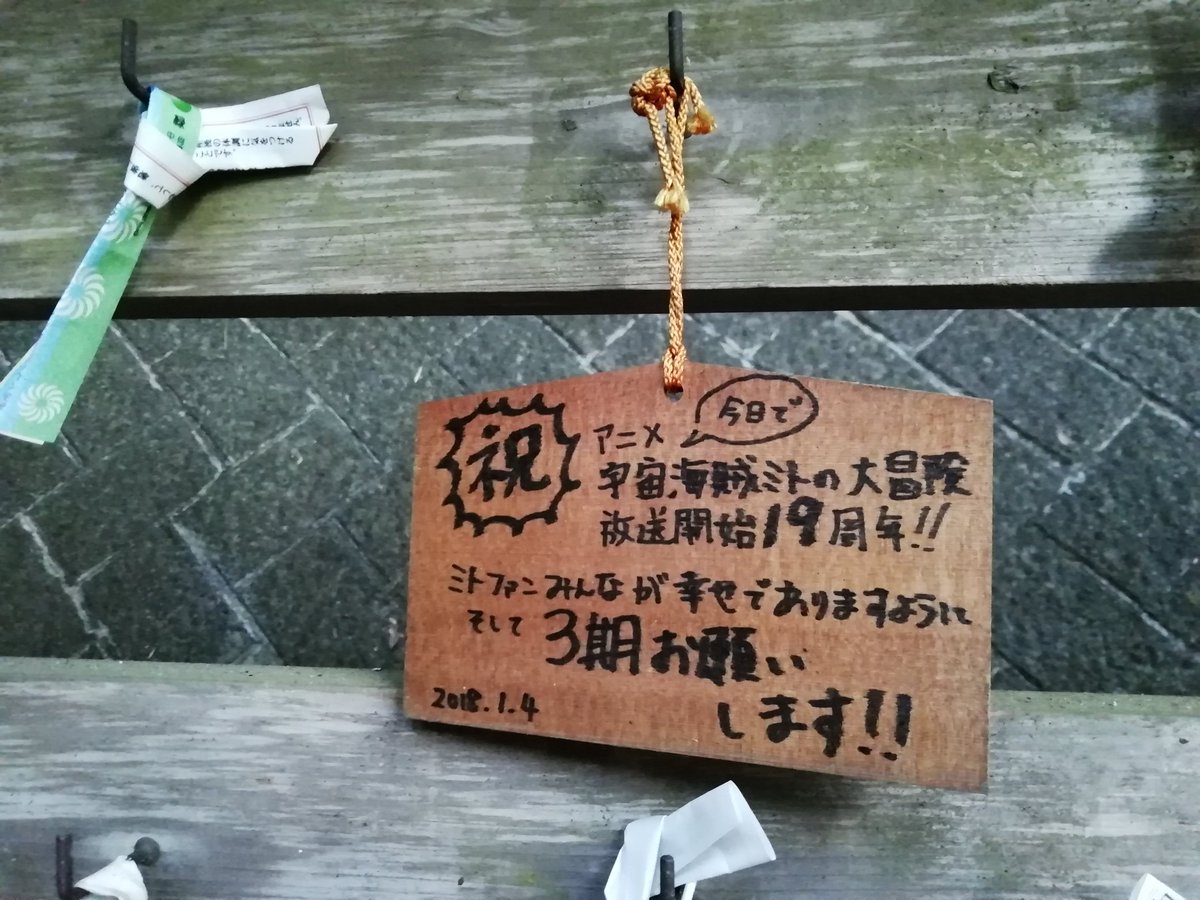 祝
今日で
アニメ
宇宙海賊ミトの大冒険
放送開始19周年!!
ミトファンみんなが幸せでありますように
そして3期お願い
します!!
2018.1.4